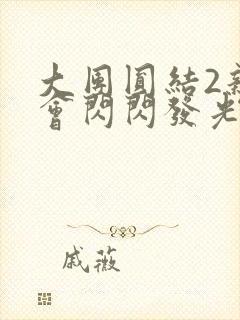 大团圓結2亲
會閃閃發光
戚薇